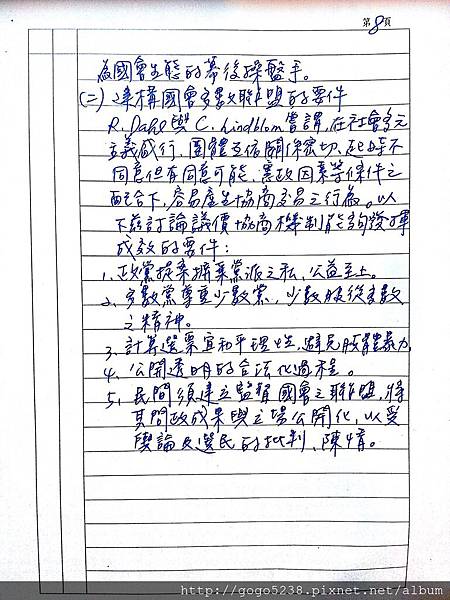 第8頁
為國會生態的幕後操盤手。
(二)建構國會多數聯盟的要件
R. Dahl與C. Lindblom嘗謂,在社會多元
主義盛行,團體互依關係密切,起時不
同意但有同意可能,憲政因素等條件之
配合下,容易產生協商交易之行為。以
下茲討論議價協商機制能夠發揮
成效的要件:
1、政黨提案摒棄黨派之私,公益至上。
2、多數黨尊重少數黨,少數服從多數
之精神。
3、計算選票宜和平理性,避免肢體暴力。
4、公開透明的合法化過程。
5、民間須建立監督國會之聯盟,將
其問政成果與立場公開化,以受
輿論及選民的批判、
http://gogo5238.pixnet.net/album